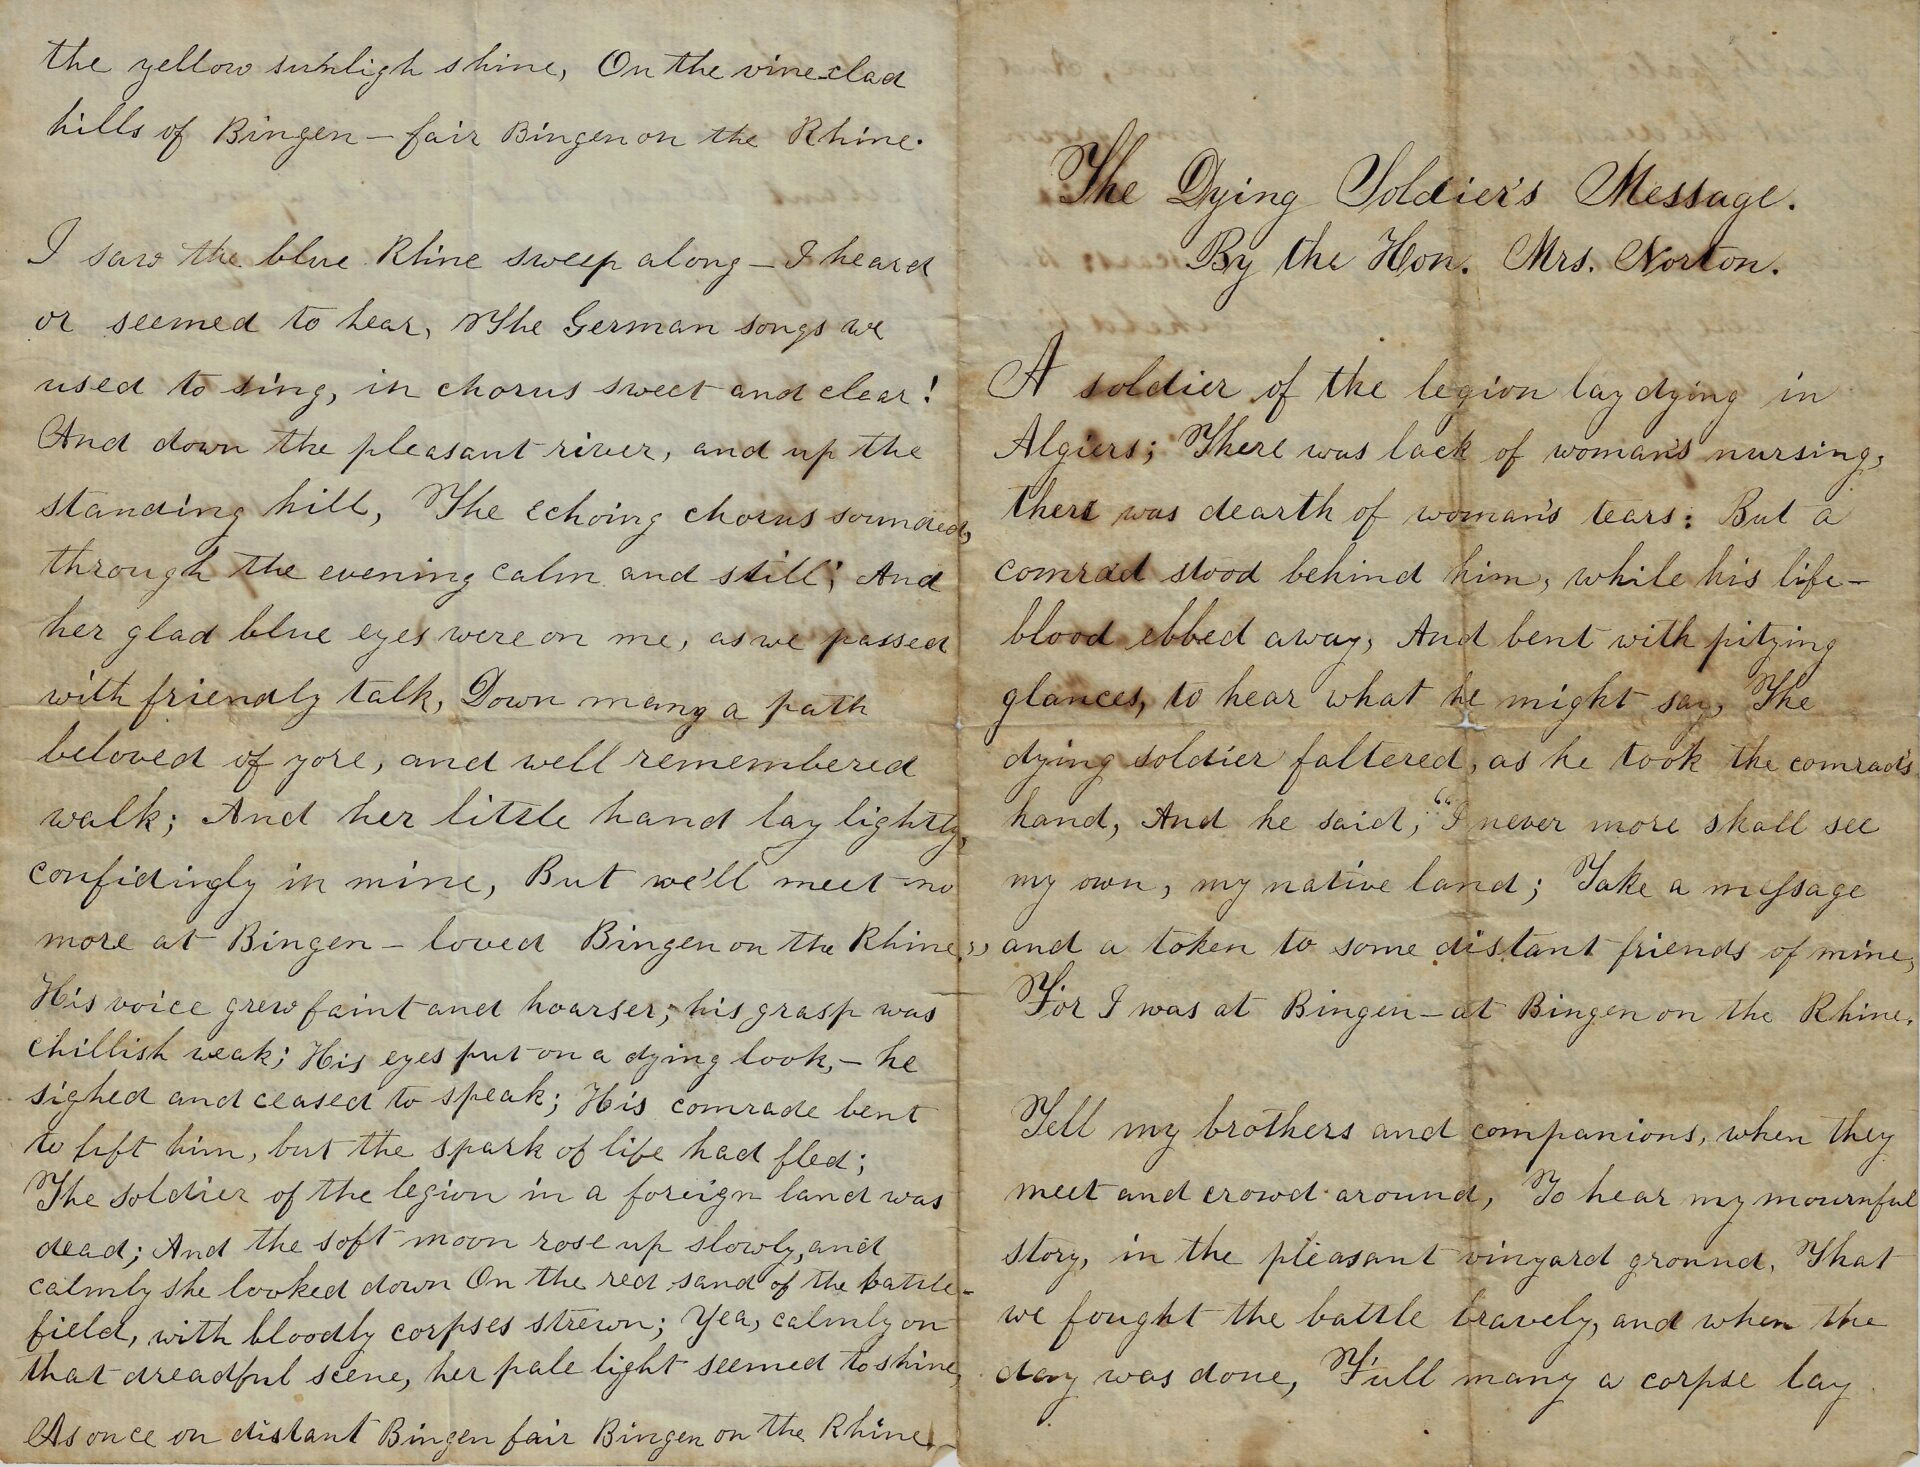 the yellow sunligh shine, On the vine-clad
hills of Bingen — fair Bingen on the Rhine.
I saw the blue Rhine sweep along — I heard
or seemed to hear, The German songs we
used to sing, in chorus sweet and clear!
And down the pleasant river, and up the
standing hill, The echoing chorus sounded,
through the evening calm and still; And
her glad blue eyes were on me, as we passed
with friendly talk, Down many a path
beloved of yore, and well remembered
walk; And her little hand lay lightly,
confidingly in mine, But we'll meet no
more at Bingen — loved Bingen on the Rhine.,,
His voice grew faint and hoarser; his grasp was
chillish weak; His eyes put on a dying look, — he
sighed and ceased to speak; His comrade bent
to lift him, but the spark of life had fled;
The soldier of the legion in a foreign land was
dead; And the soft moon rose up slowly, and
calmly she looked down On the red sand of the battle-
field, with bloodly corpses strewn; Yea, calmly on
that dreadful scene, her pale light seemed to shine,
As once on distant Bingen fair Bingen on the Rhine.
The Dying Soldier's Message.
By the Hon. Mrs. Norton.
A soldier of the legion lay dying in
Algiers; There was lack of woman's nursing,
there was dearth of woman's tears: But a
comrad stood behind him, while his life-
blood ebbed away, And bent with pitying
glances, to hear what he might say, The
dying soldier faltered, as he took the comrad's
hand, And he said, "I never more shall see
my own, my native land; Take a message
and a token to some distant friends of mine,
For I was at Bingen — at Bingen on the Rhine.
Tell my brothers and companions, when they
meet and crowd around, To hear my mournful
story, in the pleasant vinyard ground, That
we fought the battle bravely, and when the
day was done, Full many a corpse lay